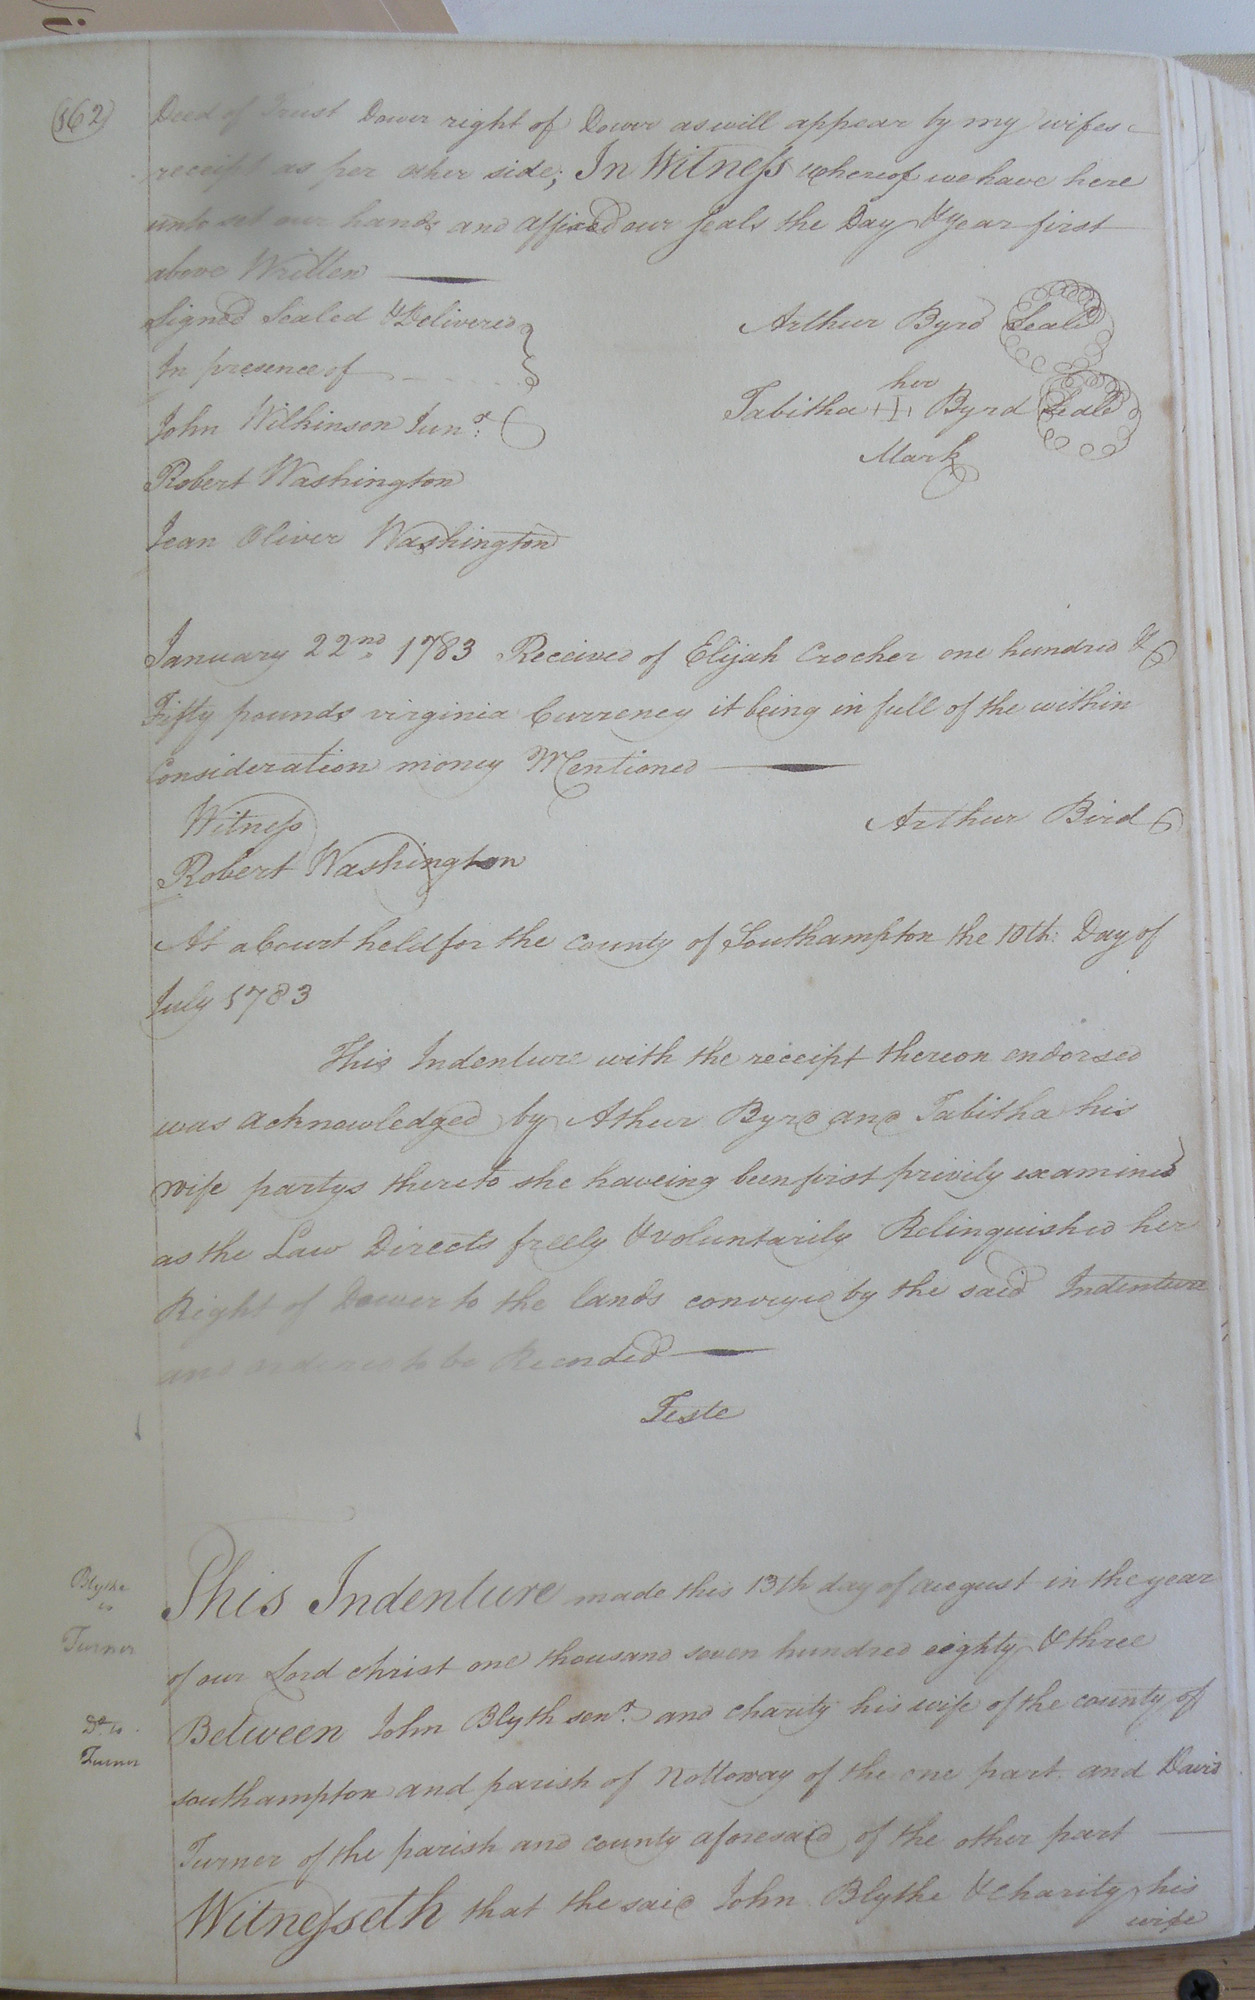 (162)
Deed of Trust Dower right of Dower as will appear by my wifes
receipt as per other side; In Witness whereof we have here
unto set our hands and affixed our seals the Day & Year first
above Written
Signed Sealed & Delivered
In presence of
John Wilkinson Junr.
Robert Washington
Jean Oliver Washington
Arthur Byrd Seale
her
Tabitha Byrd Seale
Mark
January 22nd 1783 Received of Elijah Crocker one hundred &
Fifty pounds virginia Currency it being in full of the within
Consideration money Mentioned
Witness
Arthur Bird
Robert Washington
At a court held for the county of Southampton the 10th: Day of
July 1783
This Indenture with the receipt thereon endorsed
was acknowledged by Athur Byrd and Tabitha his
wife partys thereto she haveing been first privily examined
as the Law Directs freely & voluntarily Relinquished her
Right of Dower to the lands conveyed by the said Indenture
and ordered to be Recorded
Teste
Blythe
to
Turner
This Indenture made this 13th day of august in the year
of our Lord christ one thousand seven hundred eighty & three
Do. to
Turner
Between John Blyth senr. and charity his wife of the county of
southampton and parish of Nottoway of the one part and David
Turner of the parish and county aforesaid of the other part
Witnesseth that the said John Blythe & charity his
wife